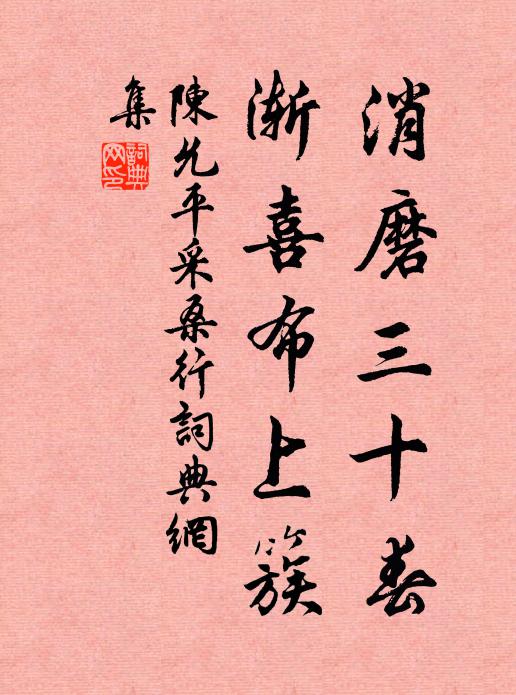 消磨三十春
漸喜布上簇
陳允平采桑行詞典網
集
詞典
网印